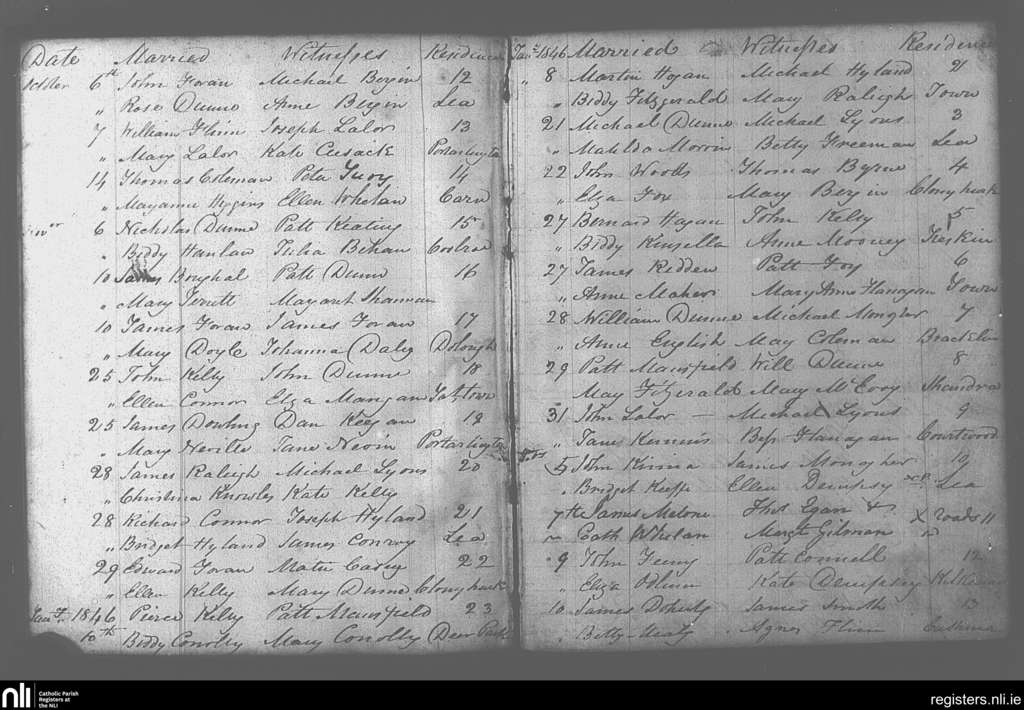 Date Married Witnesses Residence
October 6th John Foran Michael Bergin 12
" Rose Dunne Anne Bergin Lea
7 William Flinn Joseph Lalor 13
" Mary Lalor Kate Cusack Portarlington
14 Thomas Coleman Peter 14
" Maryanne Higgins Ellen Whelan Carn
6 Nicholas Dunne Patt Keating 15
" Biddy Hanlon Julia Behan
10 James Patt Dunne 16
" Mary Margaret Shannon
10 James Foran James Foran 17
" Mary Doyle Johanna Daly
25 John Kelly John Dunne 18
" Ellen Connor Eliza Mangan
25 James Dowling Dan Keegan 19
" Mary Neville Jane Nevin Portarlington
28 James Raleigh Michael Lyons 20
" Christina Knowles Kate Kelly
28 Richard Connor Joseph Hyland 21
" Bridget Hyland James Conroy Lea
29 Edward Foran Mater Casey 22
" Ellen Kelly Mary Dunne Clonyhurk
Jany. 1846 Pierce Kelly Patt Mansfield 23
10th Biddy Conolly Mary Conolly Deer Park
Jany 1846 Married Witnesses Residence
" 8 Martin Hogan Michael Hyland 2
" Biddy Fitzgerald Mary Raleigh Town
21 Michael Dunne Michael Lyons 3
" Matilda Morrin Betty Freeman Lea
22 John Woods Thomas Byrne 4
" Eliza Fox Mary Bergin Clonyhurk
27 Bernard Hagan John Kelly 5
" Biddy Kinsella Anne Mooney
27 James Redden Patt Foy 6
" Anne Maher Mary Anne Flanagan Town
28 William Dunne Michael 7
" Anne English May Coleman
29 Patt Mansfield Will Dunne 8
May Fitzgerald May McEvoy
31 John Lalor — Michael Lyons 9
" Jane Bess Flanagan Courtwood
5 John James 10
" Bridget Keeffe Ellen Dempsey Lea
7th James Malone Thos Egan & X roads 11
" Cath Whelan Mergt Gilman
9 John Patt Connell 12
" Eliza Odlum Kate Dempsey
10 James Doherty James Smith 13
" Betty Healy Agnes Flinn
nli Catholic Parish Registers at the NLI
registers.nli.ie